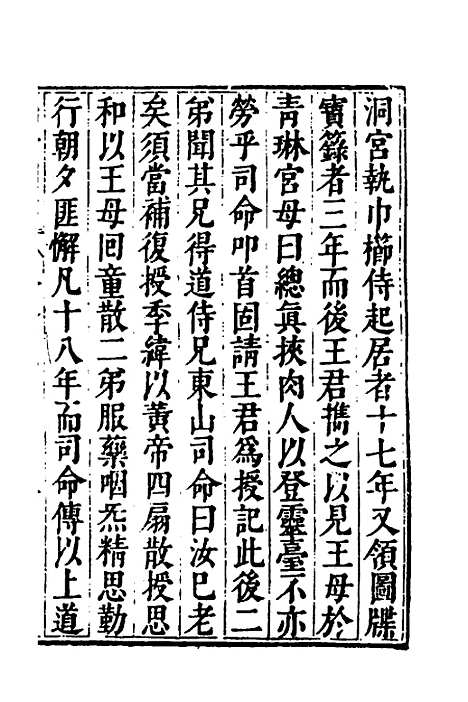 洞宮執巾櫛侍起居者十七年又領圖牒
寶籙者三年而後王君攜之以見王母於
青琳宮母曰總眞挾肉人以登靈臺不亦
勞乎司命叩首固請王君爲授記此後二
弟聞其兄得道侍兄東山司命曰汝已老
矣須當補復授季緯以黃帝四扇散授思
和以王母回童散二弟服藥咽炁精思勤
行朝夕匪懈凡十八年而司命傳以上道